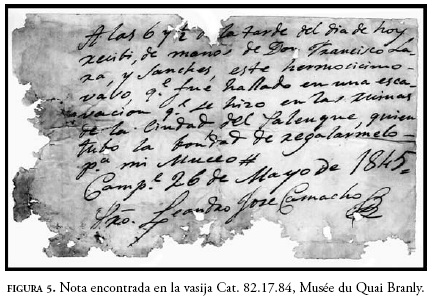 A las 6 y ½ de la tarde del dia de hoy
recibi, de manos de Don Francisco La-
ra, y Sanches, este hermocicimo
vaso, q.e fué hallado en una esca-
vacion q.e se hizo en las ruinas
de la Ciudad del Palenque, quien
tubo la bondad de regalarmelo
p.a mi Museo #
Camp.e 26 de Mayo de 1845=
Leandro Jose Camacho
FIGURA 5. Nota encontrada en la vasija Cat. 82.17.84, Musée du Quai Branly.